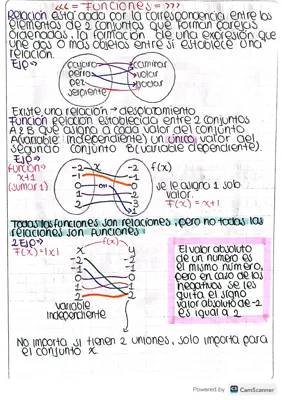 <<< = Funciones = >>>
Relación esta dada por la correspondencia entre los
elementos de 2 conjuntos que forman parejas
ordenadas. la formación de una expresión que
une dos o más objetos entre sí establece una
relación.
Ejp→
cuervo caminar
perro volar
pez nadar
serpiente
Existe una relación → desplazamiento
Función relación establecida entre 2 conjuntos
A & B que asigna a cada valor del conjunto
A(variable independiente) un único valor del
segundo conjunto B(variable dependiente).
Ejp→
función→ x+1 (sumar 1)
x f(x)
-2 -2
-1 -1
0 0
1 1
2 2
3
se le asigna 1 solo
valor.
F(x) = x+1
Todas las funciones son relaciones, pero no todas las
relaciones son funciones
2 Ejp→
F(x)=|x|
x f(x) y
-2 -2
-1 -1
0 0
1 1
2 2
variable
independiente
El valor absoluto
de un numero es
el mismo número,
pero en caso de los
negativos se les
quita el signo
valor absoluto de -2
es igual a 2
No importa si tienen 2 uniones, solo importa para
el conjunto x
Powered by CS CamScanner